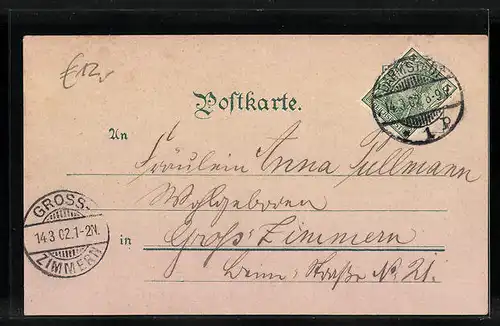 £12,-
Postkarte.
DARMSTADT
14.3.02. 8-9V
* 1 b
An
Fräulein Anna Pullmann
Wohlgeboren
in Groß-Zimmern
Straße No. 21.
GROSS-
14.3.02.1-2N.
ZIMMERN